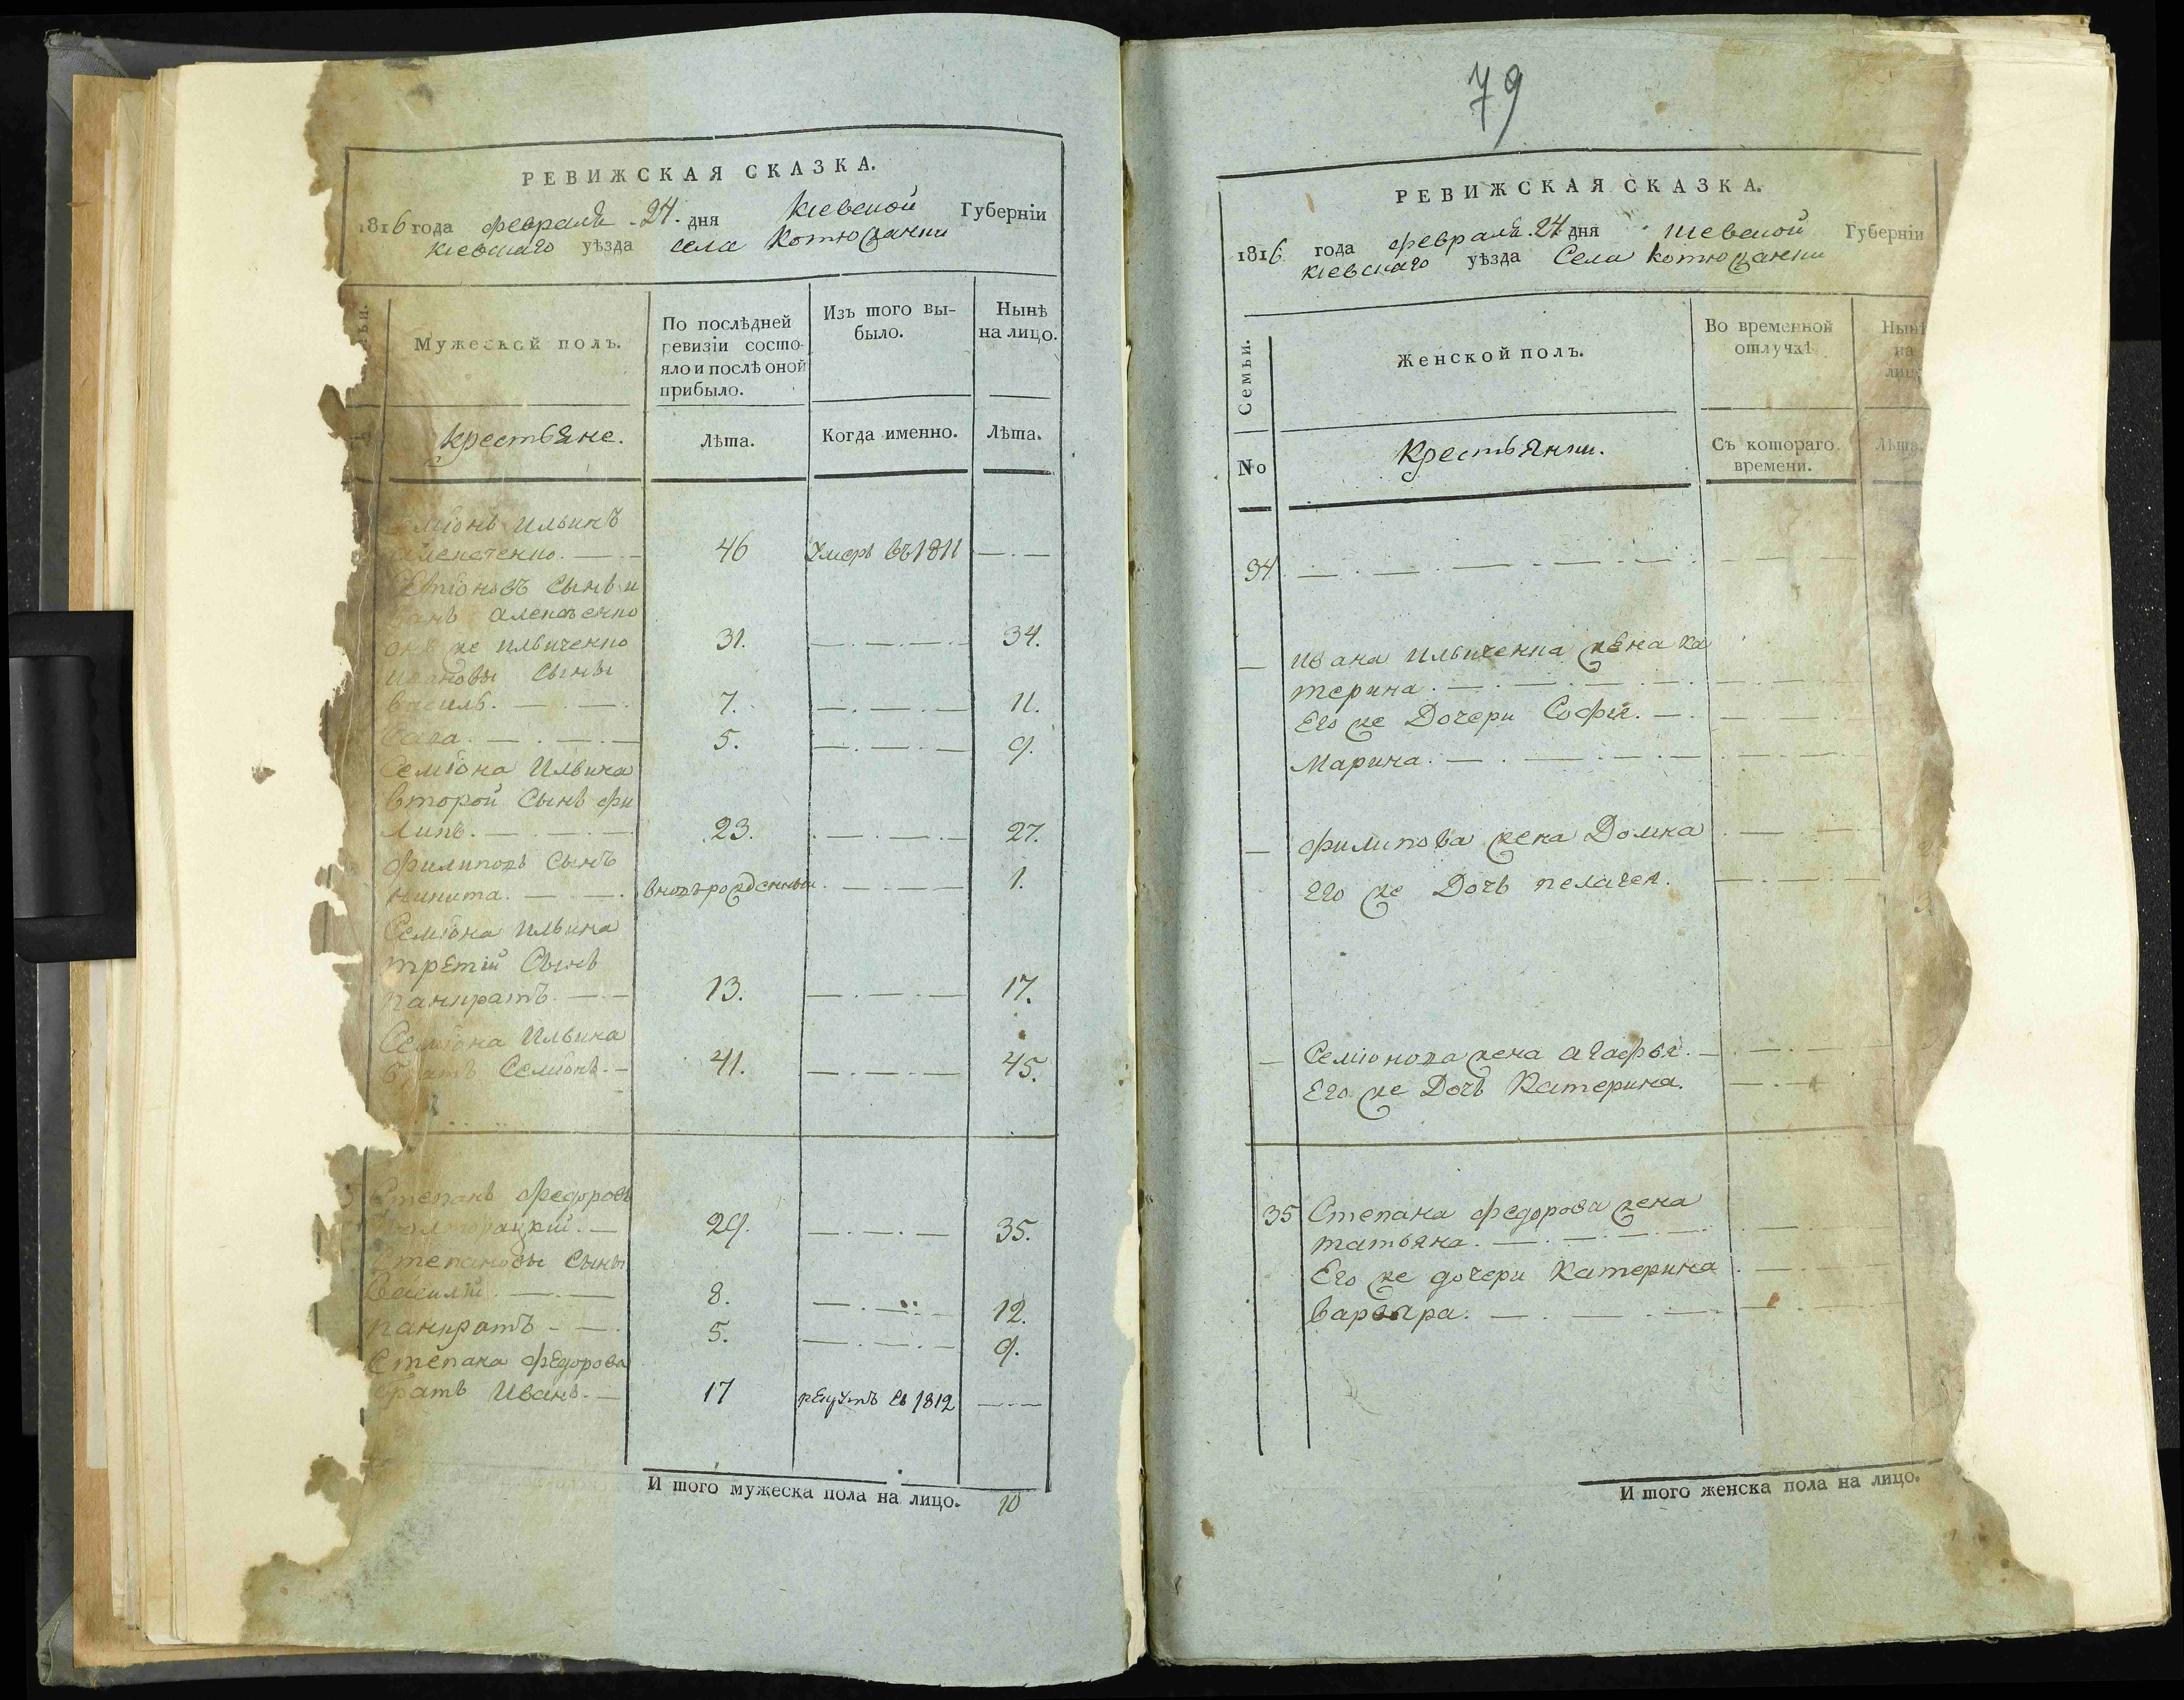 РЕВИЖСКАЯ СКАЗКА.
1816 года февраля 24. дня Кіевской Губерніи
Кіевскаго уѣзда села Котюжанки
Мужеской полъ.
По послѣдней
ревизіи состо-
яло и послѣ оной
прибыло.
Изъ того вы-
было.
Нынѣ
на лицо.
крестьяне.
Лѣта.
Когда именно.
Лѣта.
Ильинъ
46 Умеръ въ 1811
Семіоновъ Сынъ и
же Ильиченко 31. 34.
Ивановы Сыны
Василь. 7. 11.
Сава. 5. 9.
Семіона Ильина
второй Сынъ Фи
липъ. 23. 27.
Филиповъ Сынъ
Никита. вновьрожденный 1.
Семіона Ильина
третій Сынъ
панкратъ. 13. 17.
Семіона Ильина
братъ Семіонъ. 41. 45.
Степанъ Федоровъ
29. 35.
Степановы Сыны
Василій 8. 12.
панкратъ 5. 9.
Степана Федорова
братъ Иванъ. 17 рекутъ въ 1812
И того мужеска пола на лицо. 10
79
РЕВИЖСКАЯ СКАЗКА.
1816 года февраля 24 дня Кіевской Губерніи
Кіевскаго уѣзда Села Котюжанки
Семьи.
Женской полъ.
Во временной
отлучкѣ
Нынѣ
на
лицо
No
Крестьянки.
Съ котораго
времени.
Лѣта.
34
Ивана Ильиченка жена Ка
терина.
Его же Дочери Софія.
Марина.
Филипова жена Домка
Его же Дочь пелагея.
Семіонова жена агафья.
Его же Дочь Катерина.
35 Степана Федорова жена
татьяна.
Его же дочери Катерина
варвара.
И того женска пола на лицо.